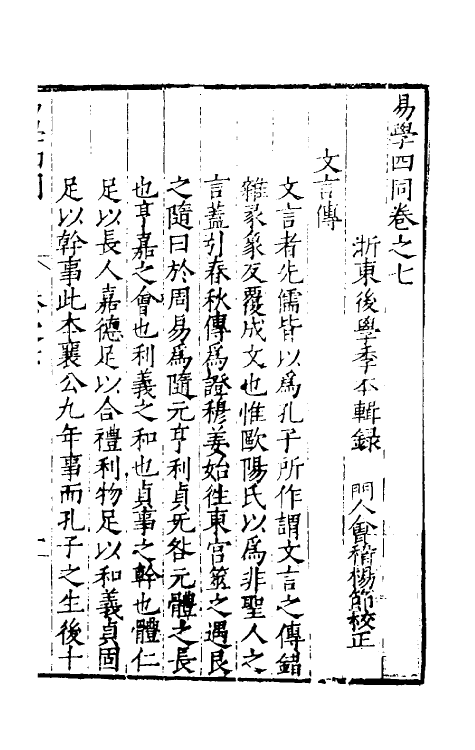 易學四同卷之七
浙東後學季本輯録　門人會稽楊節校正
文言傳
文言者先儒皆以爲孔子所作謂文言之傳錯
雜彖象反覆成文也惟歐陽氏以爲非聖人之
言蓋引春秋傳爲證穆姜始往東宮筮之遇艮
之隨曰於周易爲隨元亨利貞旡咎元體之長
也亨嘉之會也利義之和也貞事之幹也體仁
足以長人嘉德足以合禮利物足以和義貞固
足以幹事此本襄公九年事而孔子之生後十